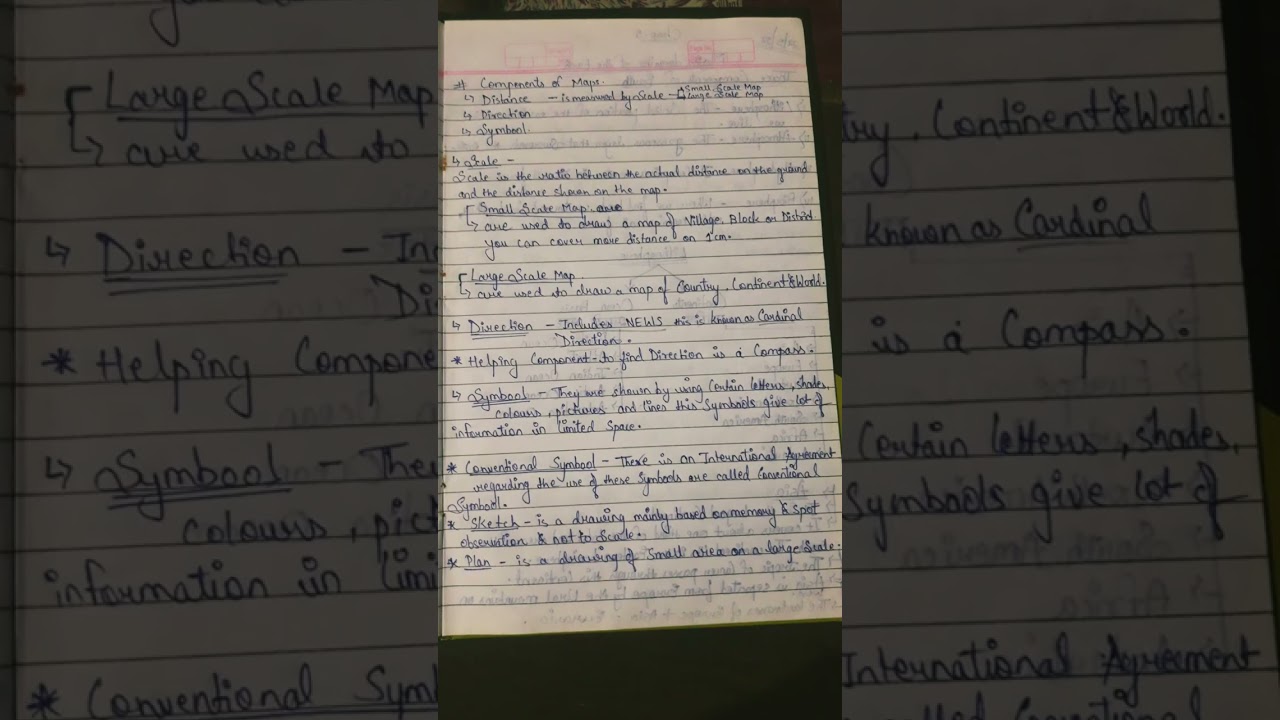 # Components of Maps.
↳ Distance - is measured by Scale - Small Scale Map
Large Scale Map
↳ Direction
↳ Symbol.
↳ Scale -
Scale is the ratio between the actual distance on the ground
and the distance shown on the map.
Small Scale Map are
↳ are used to draw a map of Village Block or District
you can cover more distance on 1cm.
Large Scale Map
↳ are used to draw a map of Country, Continent & World.
↳ Direction - Includes NEWS this is known as Cardinal
Direction.
* Helping Component to find Direction is a Compass.
↳ Symbool - They are shown by using Certain letters, shades,
colours, pictures and lines this Symbools give lot of
information in limited Space.
* Conventional Symbol - There is an International Agreement
regarding the use of these Symbols are called Conventional
Symbol.
* Sketch - is a drawing mainly based on memory & spot
observation & not to Scale.
* Plan - is a drawing of Small area on a large Scale.